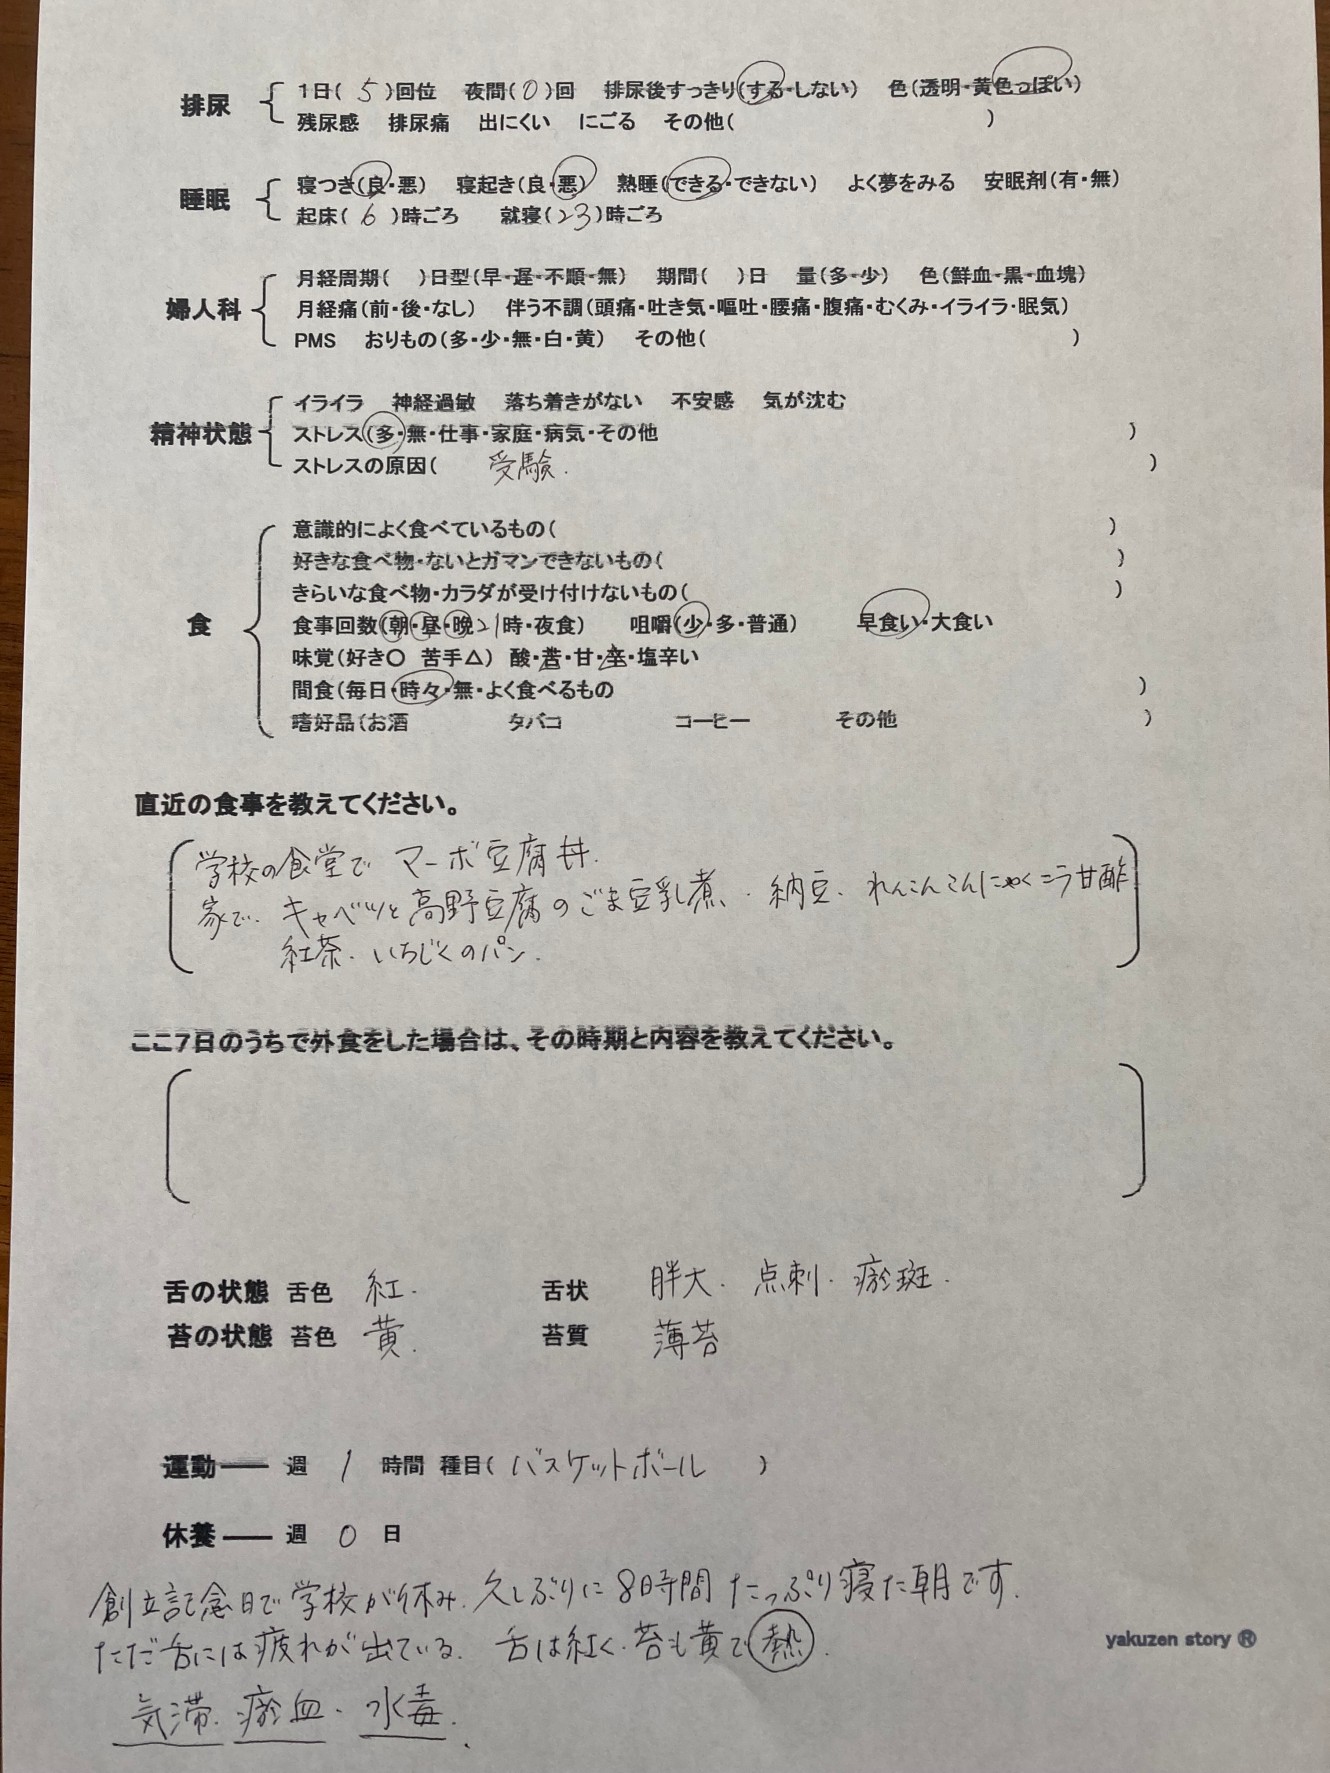 排尿 1日( 5 )回位 夜間( 0 )回 排尿後すっきり(する・しない) 色(透明・黄色っぽい)
残尿感 排尿痛 出にくい にごる その他( )
睡眠 寝つき(良・悪) 寝起き(良・悪) 熟睡(できる・できない) よく夢をみる 安眠剤(有・無)
起床( 6 )時ごろ 就寝( 23 )時ごろ
婦人科 月経周期( )日型(早・遅・不順・無) 期間( )日 量(多・少) 色(鮮血・黒・血塊)
月経痛(前・後・なし) 伴う不調(頭痛・吐き気・嘔吐・腰痛・腹痛・むくみ・イライラ・眠気)
PMS おりもの(多・少・無・白・黄) その他( )
精神状態 イライラ 神経過敏 落ち着きがない 不安感 気が沈む
ストレス(多・無・仕事・家庭・病気・その他 )
ストレスの原因( 受験. )
食 意識的によく食べているもの( )
好きな食べ物・ないとガマンできないもの( )
きらいな食べ物・カラダが受け付けないもの( )
食事回数(朝・昼・晩21時・夜食) 咀嚼(少・多・普通) 早食い・大食い
味覚(好き○ 苦手△) 酸・苦・甘・辛・塩辛い
間食(毎日・時々・無・よく食べるもの )
嗜好品(お酒 タバコ コーヒー その他 )
直近の食事を教えてください。
学校の食堂で マーボ豆腐丼.
家で. キャベツと高野豆腐のごま豆乳煮、. 納豆. れんこんこんにゃくニラ甘酢
紅茶. いちじくのパン.
ここ7日のうちで外食をした場合は、その時期と内容を教えてください。
舌の状態 舌色 紅. 舌状 胖大. 点刺. 瘀斑.
苔の状態 苔色 黄. 苔質 薄苔
運動 ── 週 1 時間 種目( バスケットボール )
休養 ── 週 0 日
創立記念日で学校が休み. 久しぶりに8時間たっぷり寝た朝です.
ただ舌には疲れが出ている. 舌は紅く. 苔も黄で熱.
yakuzen story ®
気滞. 瘀血. 水毒.